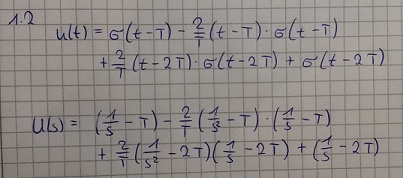 1.2 u(t) = σ(t-T) - 2/T (t-T) · σ(t-T)
+ 2/T (t-2T) · σ(t-2T) + σ(t-2T)
U(s) = (1/s - T) - 2/T (1/s² - T) · (1/s - T)
+ 2/T (1/s² - 2T) (1/s - 2T) + (1/s - 2T)